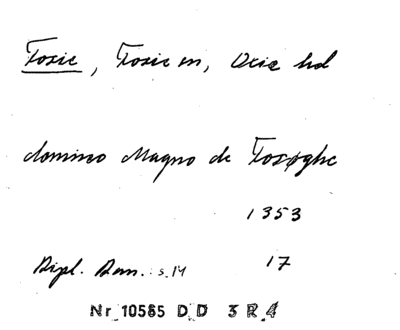 Tosie, Tosie sn, Oxie hd
domino Magno de Tosøghe
1353
Dipl. Dan. s. 14 17
Nr 10585 D D 3 R 4